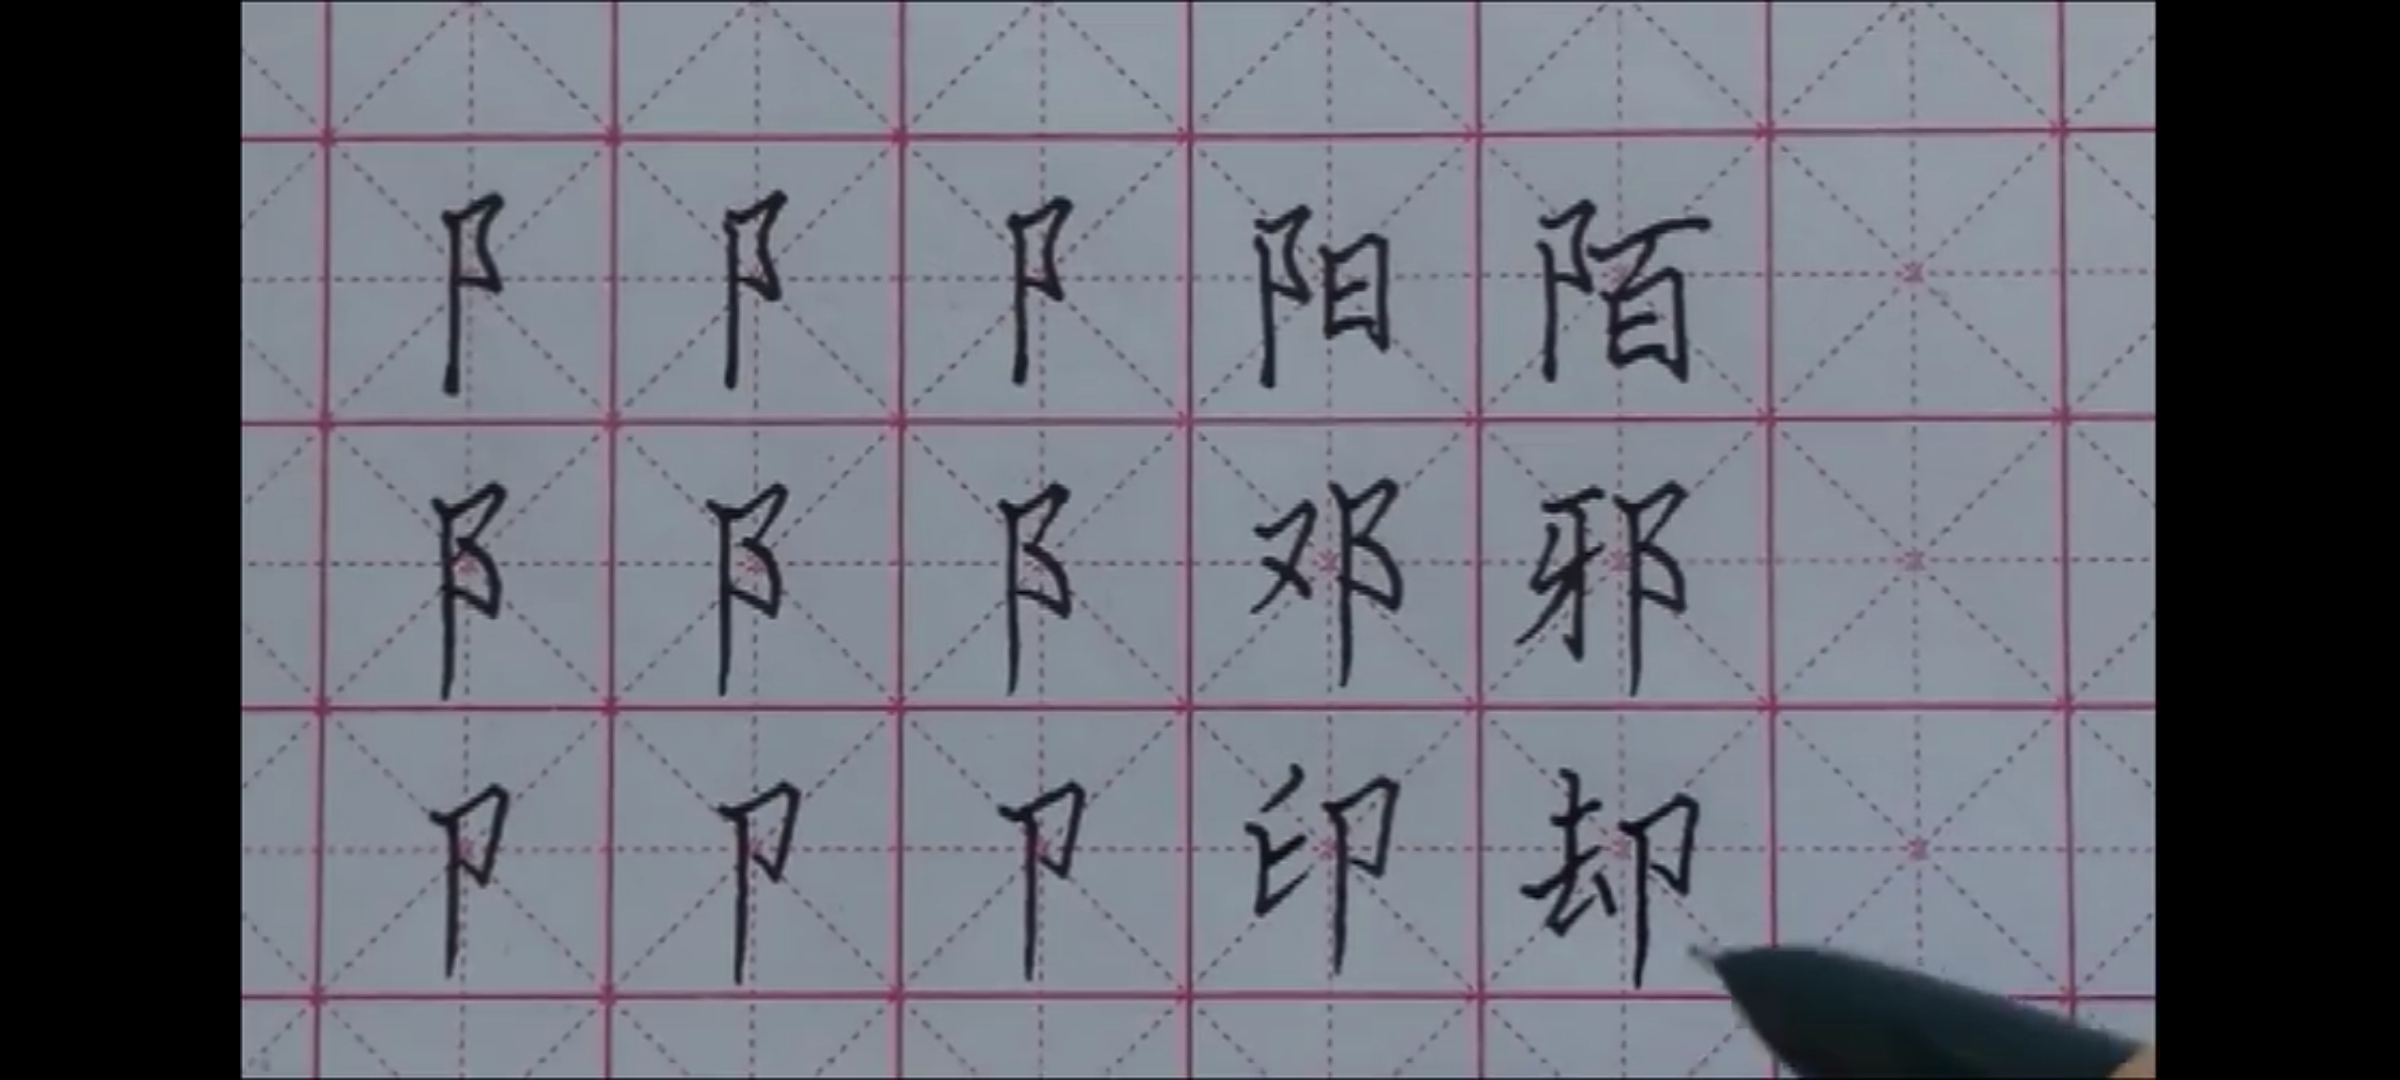 阝 阝 阝 阳 陌
阝 阝 阝 邓 邪
卩 卩 卩 印 却